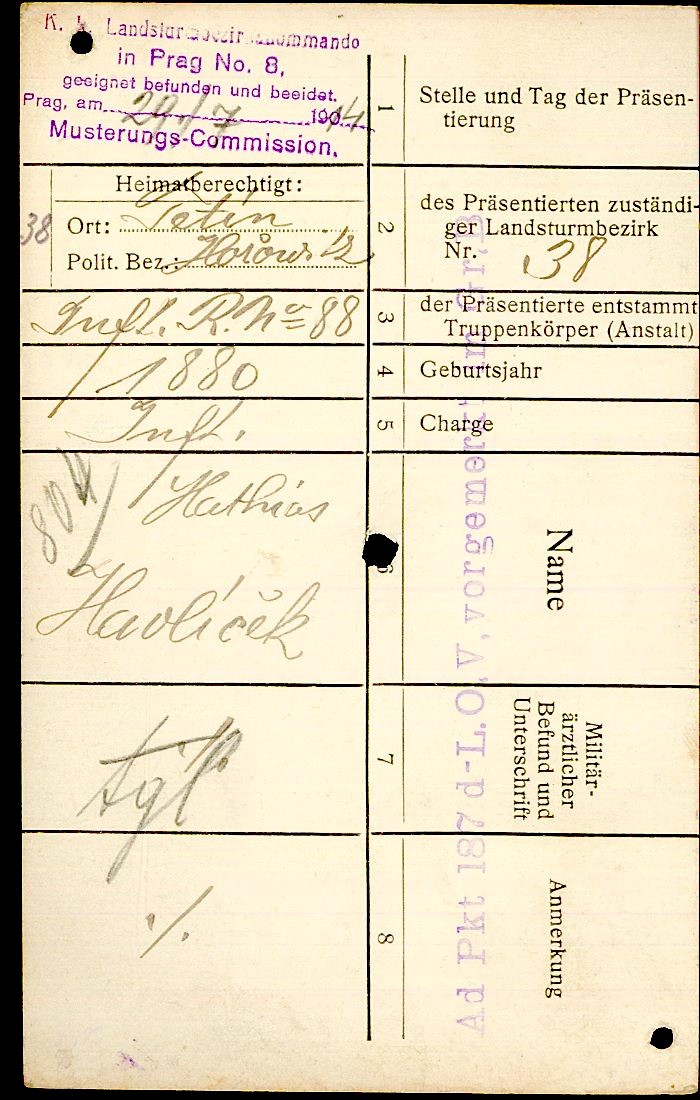 K. k. Landsturmbezirkskommando
in Prag No. 8,
geeignet befunden und beeidet.
Prag, am 29/7 1914
Musterungs-Commission.
1
Stelle und Tag der Präsen-
tierung
Heimatberechtigt:
38
Ort: Tetín
Polit. Bez.: Hořowitz
2
des Präsentierten zuständi-
ger Landsturmbezirk
Nr. 38
Inft. R. No 88
3
der Präsentierte entstammt
Truppenkörper (Anstalt)
1880
4
Geburtsjahr
Inft.
5
Charge
804
Mathias
Havlíček
6
Name
tgl
7
Militär-
ärztlicher
Befund und
Unterschrift
./.
8
Anmerkung
Ad Pkt 187 d-L.O.V. vorgemerkt